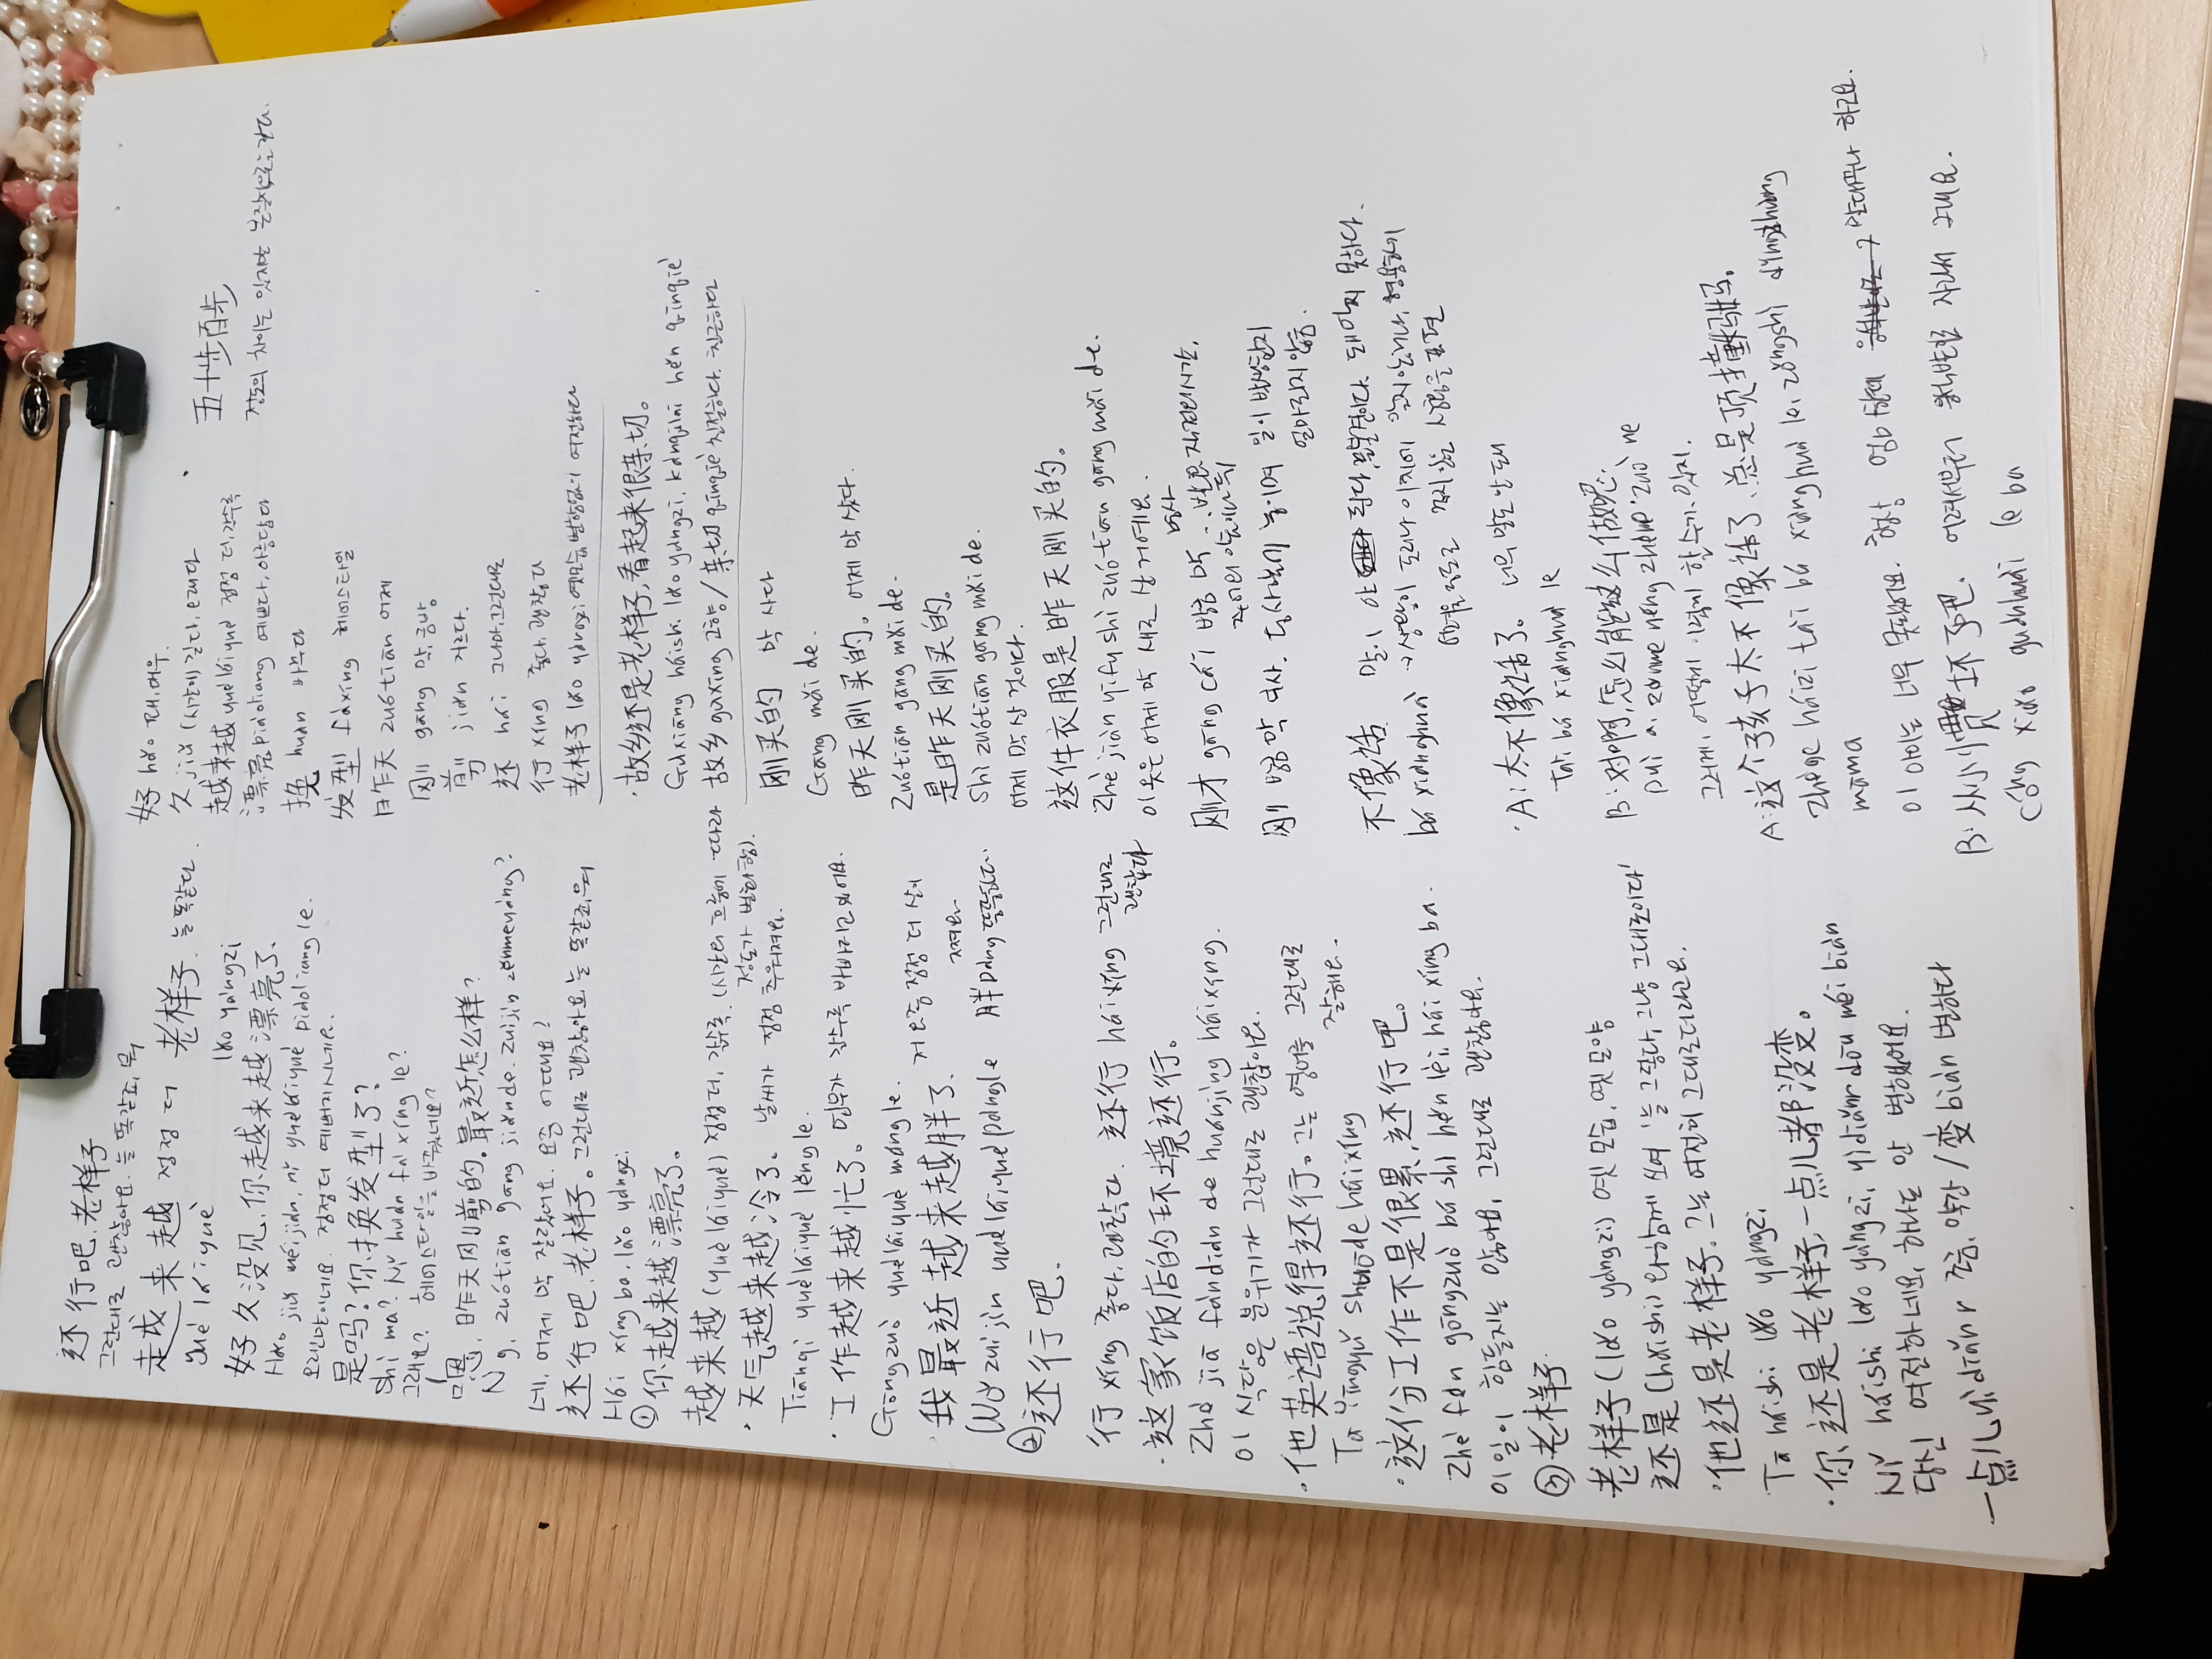 还行吧.老样子
그런대로 괜찮아요. 늘 똑같죠, 뭐
越来越 점점 더 老样子. 늘 똑같다.
yuè láiyuè lǎo yàngzi
好久没见, 你越来越漂亮了.
Hǎo jiǔ méijiàn, nǐ yuèláiyuè piàoliang le.
오랜만이네요. 점점 더 예뻐지시네요.
是吗? 你换发型了?
Shì ma? Nǐ huàn fà xíng le?
그래요? 헤어스타일을 바꿨네요?
嗯, 昨天刚剪的. 最近怎么样?
Ǹg, zuótiān gāng jiǎnde. Zuìjìn zěnmeyàng?
네, 어제 막 잘랐어요. 요즘 어때요?
还行吧, 老样子。그런대로 괜찮아요, 늘 똑같죠, 뭐
Hái xíng ba, lǎo yàngzi
① 你越来越漂亮了。
越来越 (yuè láiyuè) 점점 더, 갈수록. (시간의 흐름에 따라
정도가 변화함).
· 天气越来越冷了。 날씨가 점점 추워져요.
Tiānqì yuèláiyuè lěng le.
· 工作越来越忙了。업무가 갈수록 바빠지고 있어요.
Gōngzuò yuèláiyuè máng le.
· 我最近越来越胖了. 저 요즘 점점 더 살이
쪄요
Wǒ zuìjìn yuèláiyuè pàngle 胖 pàng 뚱뚱하다.
② 还行吧.
行 xíng 좋다, 괜찮다. 还行 háixíng 그런대로
괜찮다
· 这家饭店的环境还行。
Zhè jiā fàndiàn de huánjìng háixíng.
이 식당은 분위기가 그런대로 괜찮아요.
· 他英语说得还行。그는 영어를 그런대로
잘해요.
Tā Yīngyǔ shuōde háixíng
· 这份工作不是很累, 还行吧。
Zhè fèn gōngzuò bú shì hěn lèi, hái xíng ba.
이 일이 힘들지는 않아요, 그런대로 괜찮아요.
③ 老样子
老样子 (lǎo yàngzi) 옛 모습, 옛 모양
还是 (háishi) 와 함께 쓰여 '늘 그렇다, 그냥 그대로이다'
· 他还是老样子. 그는 여전히 그대로더라고요.
Tā háishi lǎo yàngzi
· 你还是老样子, 一点儿都没变。
Nǐ háishi lǎo yàngzi, yìdiǎnr dōu méi biàn
당신 여전하네요, 하나도 안 변했어요.
一点儿 yìdiǎnr 조금, 약간 / 变 biàn 변하다
好 hǎo 꽤, 매우.
久 jiǔ (시간이) 길다, 오래다
越来越 yuè láiyuè 점점 더, 갈수록
漂亮 piàoliang 예쁘다, 아름답다
换 huàn 바꾸다
发型 fàxíng 헤어스타일
昨天 zuótiān 어제
刚 gāng 막, 금방
剪 jiǎn 자르다.
还 hái 그나마, 그런대로
行 xíng 좋다, 괜찮다
老样子 lǎo yàngzi 옛모습, 변함없이 여전하다
· 故乡还是老样子, 看起来很亲切。
Gùxiāng háishi lǎo yàngzi, kànqǐlái hěn qīnqiè
故乡 gùxing 고향 / 亲切 qīnqiè 친절하다. 친근하다
刚买的 막 사다
Gāng mǎi de.
昨天刚买的。 어제 막 샀다.
Zuótiān gāng mǎi de.
是昨天刚买的.
Shì zuótiān gāng mǎi de.
어제 막 산 것이다.
这件衣服是昨天刚买的。
Zhè jiàn yīfu shì zuótiān gāng mǎi de.
이 옷은 어제 막 새로 산 거예요.
刚才 gāng cái 방금 막 명사 .. 발화 직전의 시간,
주어의 앞이나 뒤
刚 방금 막 부사. 동사 앞에 놓이며 일이 발생한지
얼마되지 않음.
不像话 말이 안 된다, 꼴불견이다. 돼먹지 못하다.
bú xiànghuà
· A: 太不像话了。 너무 말도 안 돼
Tài bú xiànghuà le
B: 对啊, 怎么能这么做呢.
Duì a, zěnme néng zhème zuò ne
그러게, 어떻게 이렇게 할 수가 있지.
A: 这个孩子太不像话了, 总是顶撞妈妈。
Zhège háizi tài bú xiànghuà le, zǒngshì dǐngzhuàng
māma
이 아이는 너무 못됐어요. 항상 엄마한테 말대꾸나 하고요.
B: 从小惯坏了吧. 어려서부터 자라서 그래요.
Cóng xiǎo guànhuài le ba
五十步百步
정도의 차이는 있지만 본질적으로는 같다.